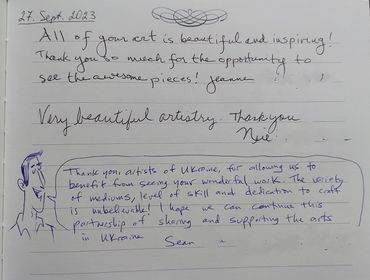 27. Sept. 2023
All of your art is beautiful and inspiring!
Thank you so much for the opportunity to
see the awesome pieces! Jeanne
Very beautiful artistry. Thank you
Thank you, artists of Ukraine, for allowing us to
benefit from seeing your wonderful work. The variety
of mediums, level of skill and dedication to craft
is unbelievable! I hope we can continue this
partnership of sharing and supporting the arts
in Ukraine
Sean